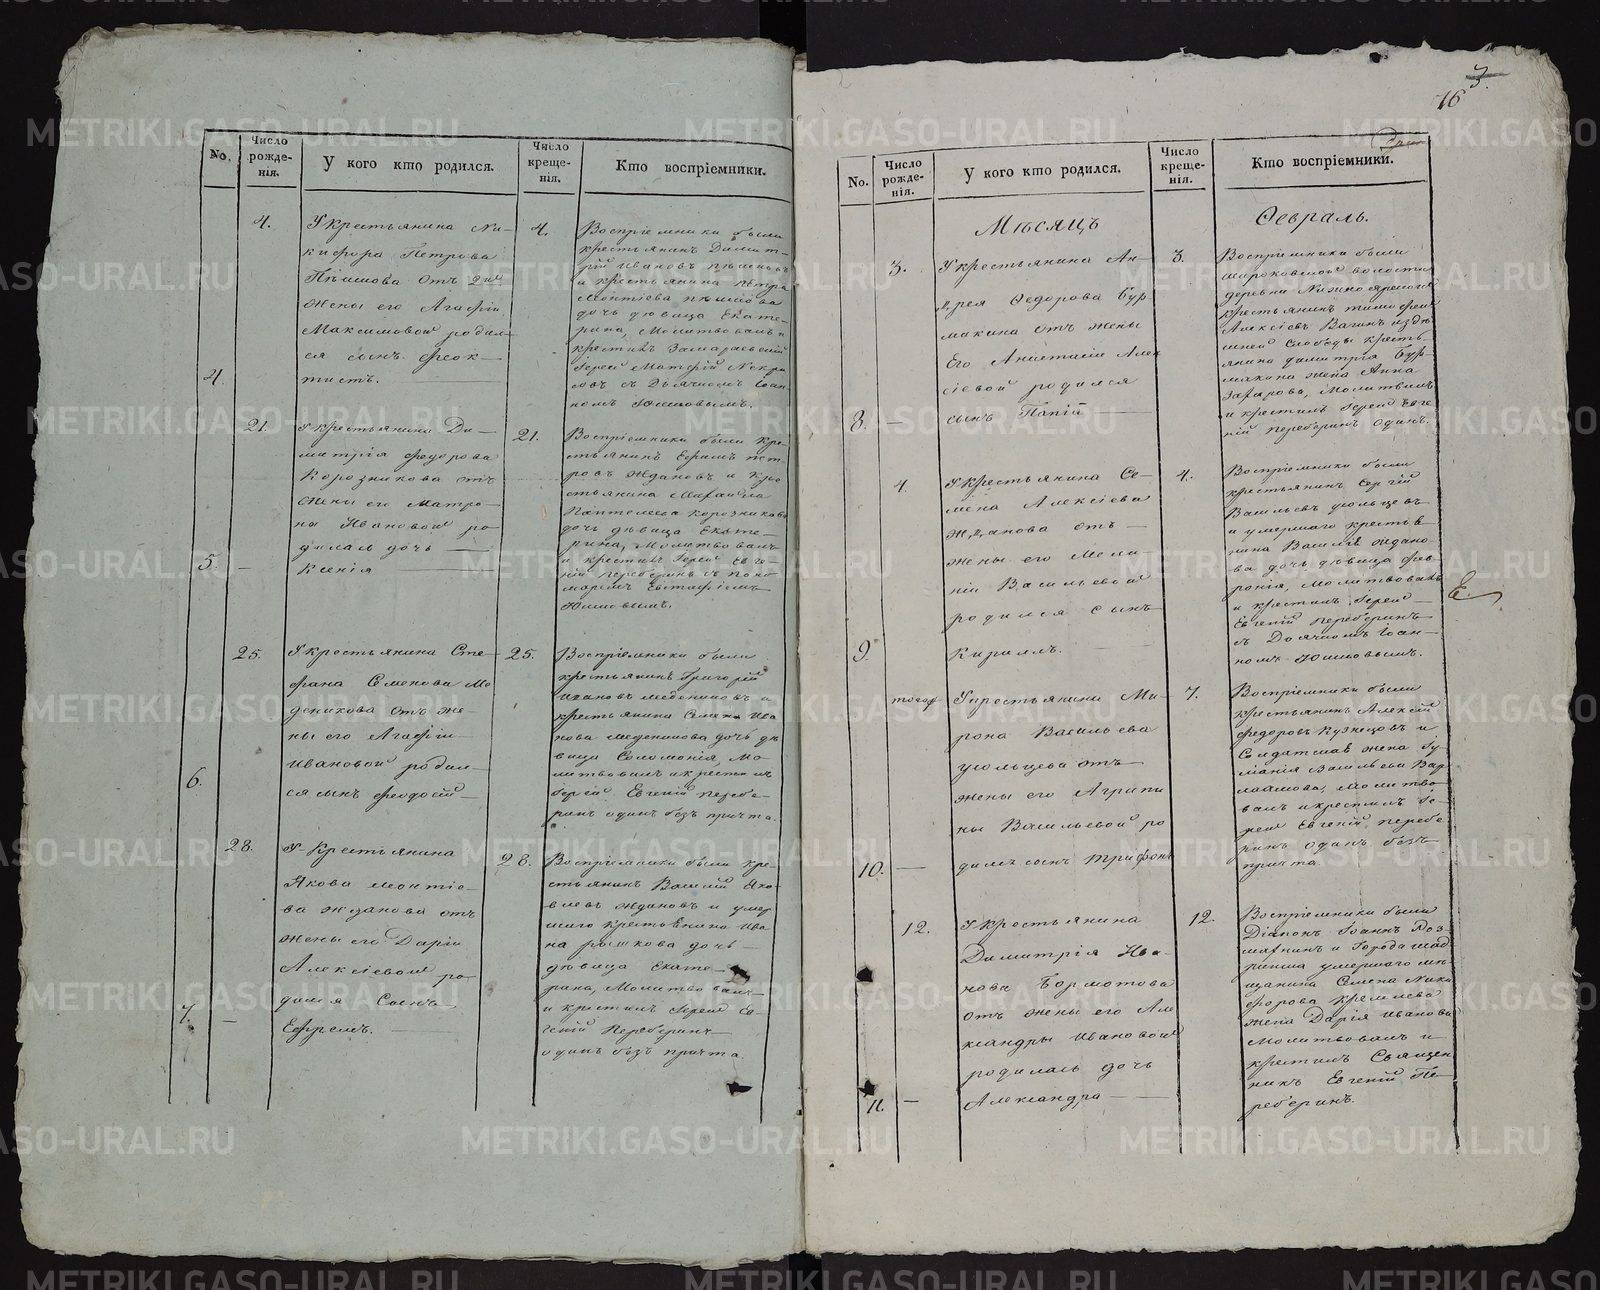 No.
Число рожде-нія.
У кого кто родился.
Число креще-нія.
Кто воспріемники.
4.
4.
У крестьянина Ни-
кифора Петрова
Пѣшкова отъ 2й
жены его Агафіи
Максимовой родил-
ся сынъ Феок-
тистъ.
4.
Воспріемники были
крестьянинъ Димит-
рій Ивановъ Пѣшковъ
и крестьянина Петра
Леонтіева Пѣшкова
дочь дѣвица Екате-
рина, Молитвовалъ и
крестилъ
Іерей Матфій Некра
совъ съ Дьячкомъ Іоан
номъ Юшковымъ.
5.
21.
У крестьянина Ди-
митрія Федорова
Корозникова отъ
жены его Матро-
ны Ивановой ро
дилась дочь
Ксенія
21.
Воспріемники были кре-
стьянинъ Ефимъ Пет-
ровъ Ждановъ и кре
стьянина Михаила
Пантелеева Корозникова
дочь дѣвица Екате-
рина, Молитвовалъ
и крестилъ Іерей Евге-
ній Переберинъ съ Поно
маремъ Евстафіемъ
Юшковымъ.
6.
25.
У крестьянина Сте-
фана Семенова Ме
деникова отъ же-
ны его Агафіи
Ивановой родил-
ся сынъ Феодосій
25.
Воспріемники были
крестьянинъ Григорій
Ивановъ Медениковъ и
крестьянина Семена Ива
нова Меденикова дочь дѣ
вица Соломонія, Мо-
литвовалъ и крестилъ
Іерей Евгеній Перебе-
ринъ одинъ безъ причта.
7.
28.
У крестьянина
Якова Леонтіе-
ва Жданова отъ
жены его Даріи
Алексіевой ро-
дился сынъ
Ефремъ.
28.
Воспріемники были кре-
стьянинъ Василій Яко-
влевъ Ждановъ и умер
шаго крестьянина Ива
на дочь
дѣвица Екате-
рина, Молитвовалъ
и крестилъ Іерей Ев-
геній Переберинъ
одинъ безъ причта.
3.
16
No.
Число рожде-нія.
У кого кто родился.
Число креще-нія.
Кто воспріемники.
Мѣсяцъ Февраль.
8.
3.
У крестьянина Ан-
дрея Федорова Бур
макина отъ жены
Его Анастасіи Алек
сіевой родился
сынъ Папій
3.
Воспріемники были
волости
деревни
крестьянинъ Тимофей
Алексіевъ Вагинъ и здѣ
шней Слободы кресть-
янина Димитрія Бур-
макина жена Анна
Захарова, Молитвовалъ
и крестилъ Іерей Евге
ній Переберинъ одинъ.
9.
4.
У крестьянина Се-
мена Алексіева
Жданова отъ
жены его Мела
ніи Васильевой
родился сынъ
Кириллъ.
4.
Воспріемники были
крестьянинъ Сергій
Васильевъ Усольцевъ
и умершаго крестья
нина Василія Ждано-
ва дочь дѣвица Фев-
ронія, Молитвовалъ
и крестилъ Іерей
Евгеній Переберинъ
съ Дьячкомъ Іоан-
номъ Юшковымъ.
10.
тогож
У крестьянина Ми-
рона Васильева
Усольцева отъ
жены его Агрипи
ны Васильевой ро
дилъ сынъ Трифонъ
7.
Воспріемники были
крестьянинъ Алексій
Федоровъ Кузнецовъ и
Солдатская жена Гу-
манія Васильева Вар
лакова, Молитво
валъ и крестилъ Іе-
рей Евгеній Перебе
ринъ одинъ безъ
причта.
11.
12.
У крестьянина
Димитрія Ива-
нова Бормотова
отъ жены его Але
ксандры Ивановой
родилась дочь
Александра
12.
Воспріемники были
Діаконъ Іоаннъ
и Города Шад
ринска умершаго мѣ
щанина Семена Ники
форова Кремлева
жена Дарія Иванова
Молитвовалъ и
крестилъ Священ
никъ Евгеній Пе-
реберинъ.
METRIKI.GASO-URAL.RU